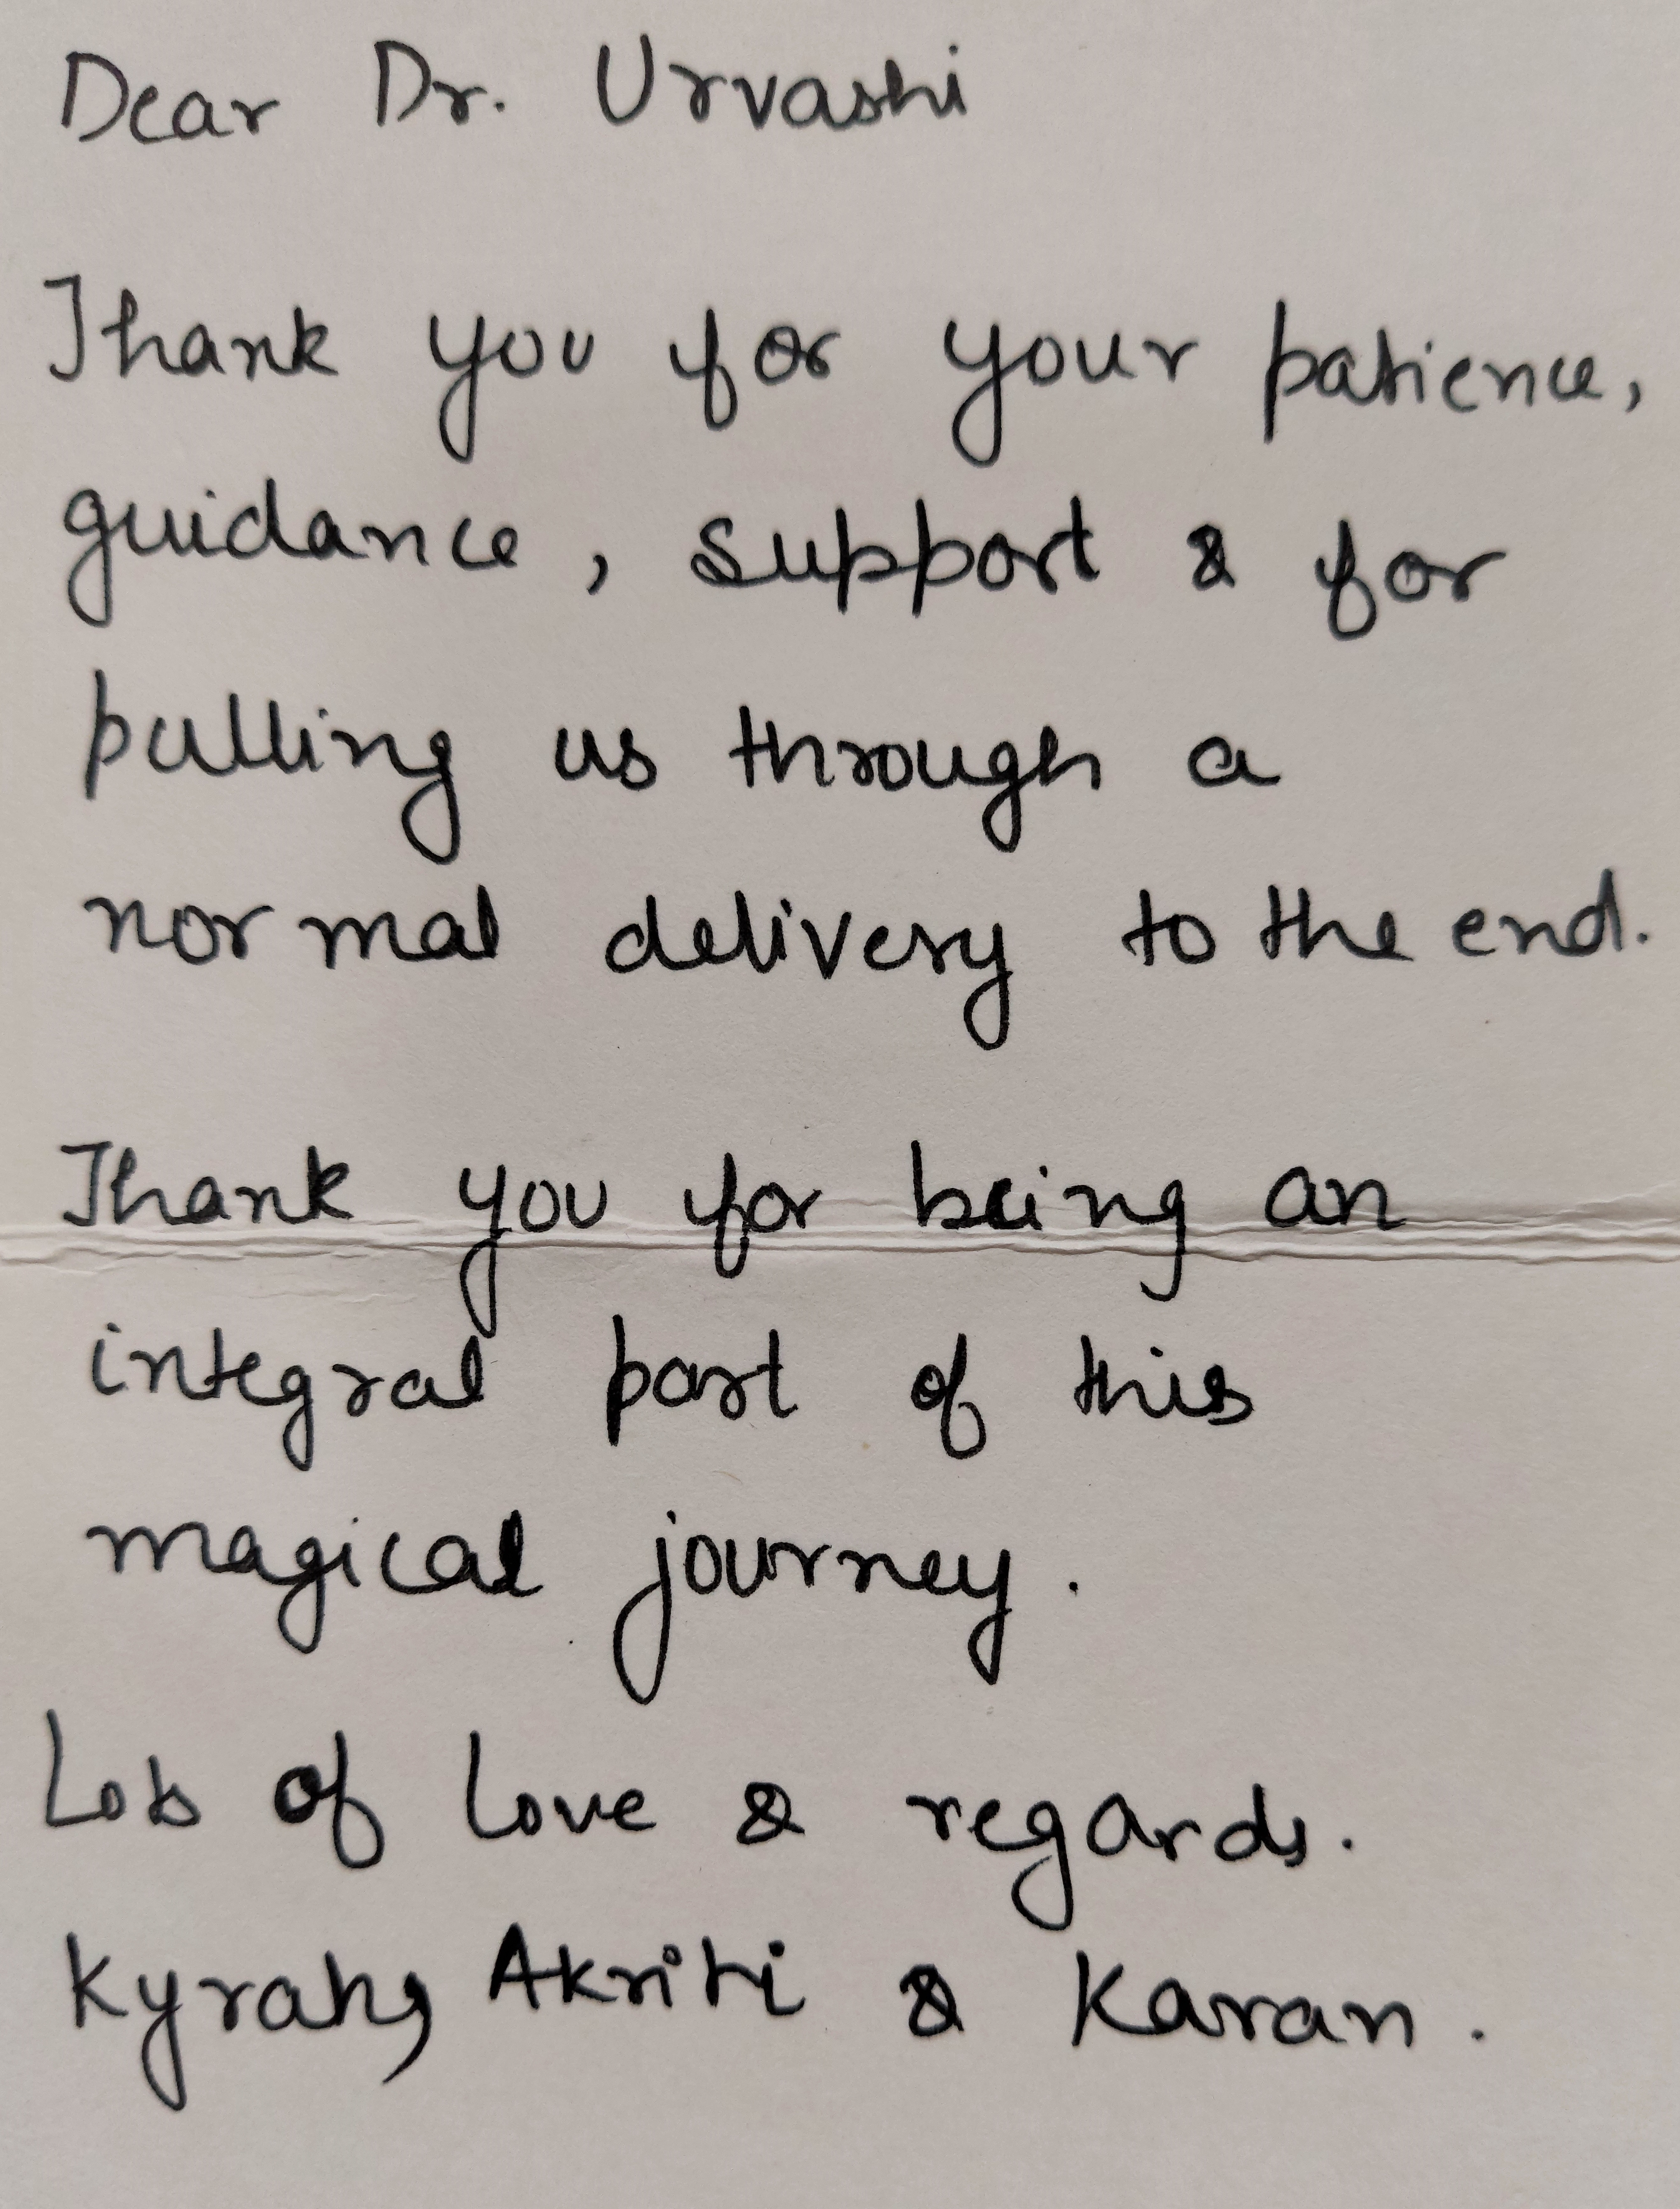 Dear Dr. Urvashi
Thank you for your patience,
guidance, support & for
pulling us through a
normal delivery to the end.
Thank you for being an
integral part of this
magical journey.
Lots of love & regards.
Kyrah, Akriti & Karan.